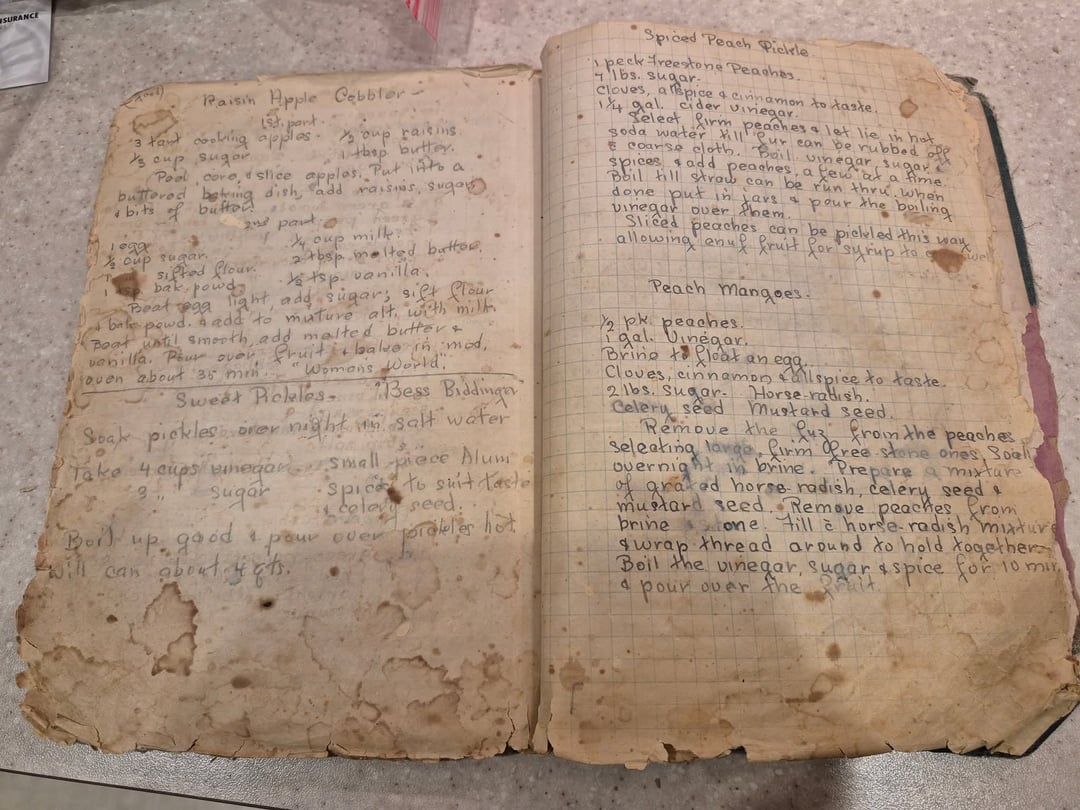 SURANCE
(Good)
Raisin Apple Cobbler -
1st. part.
3 tart cooking apples. ½ cup raisins.
⅓ cup sugar 1 tbsp butter.
Peel, core, & slice apples. Put into a
buttered baking dish, add raisins, sugar
& bits of butter.
2nd part
1 egg ¼ cup milk.
½ cup sugar. 2 tbsp melted butter.
1 sifted flour. ½ tsp. vanilla.
1 tsp bak. powd.
Beat egg light, add sugar; sift flour
& bak. powd. & add to mixture alt. with milk.
Beat until smooth, add melted butter &
vanilla. Pour over fruit & bake in mod.
oven about 35 min. "Womans World".
Sweet Pickles - "Bess Biddinger
Soak pickles over night in salt water
Take 4 cups vinegar. small piece Alum
3 " sugar spices to suit taste
& celery seed.
Boil up good & pour over pickles hot
will can about 4 qts.
Spiced Peach Pickle
1 peck freestone Peaches.
7 lbs. sugar.
Cloves, allspice & cinnamon to taste.
1¼ gal. cider vinegar.
Select firm peaches & let lie in hot
soda water till fur can be rubbed off
c̄ coarse cloth. Boil vinegar, sugar &
spices & add peaches, a few at a time.
Boil till straw can be run thru, when
done put in jars & pour the boiling
vinegar over them.
Sliced peaches can be pickled this way
allowing enuf fruit for syrup to
Peach Mangoes.
½ pk. peaches.
1 gal. vinegar.
Brine to float an egg.
Cloves, cinnamon & allspice to taste.
2 lbs. sugar. Horse-radish.
Celery seed Mustard seed.
Remove the fuz from the peaches
selecting large, firm free-stone ones, Soak
overnight in brine. Prepare a mixture
of grated horse-radish, celery seed &
mustard seed. Remove peaches from
brine & stone. Fill c̄ horse-radish mixture
& wrap thread around to hold together
Boil the vinegar, sugar & spice for 10 min.
& pour over the fruit.